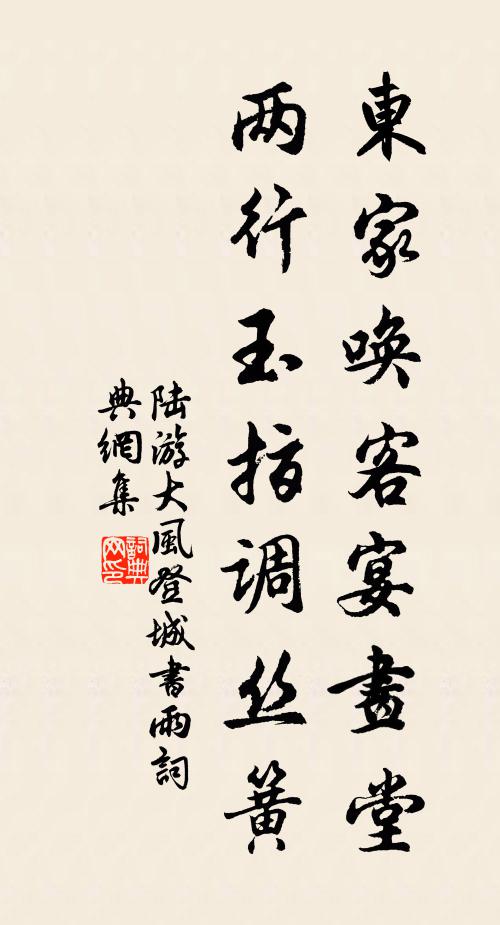 東家唤客宴畫堂
两行玉指调丝簧
陆游大風登城書兩詞
典網集
詞典网印